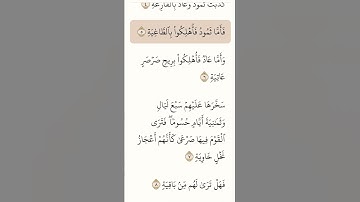 كَذَّبَتْ ثَمُودُ وَعَادٌۢ بِٱلْقَارِعَةِ ٤
فَأَمَّا ثَمُودُ فَأُهْلِكُوا۟ بِٱلطَّاغِيَةِ ٥
وَأَمَّا عَادٌ فَأُهْلِكُوا۟ بِرِيحٍ صَرْصَرٍ
عَاتِيَةٍ ٦
سَخَّرَهَا عَلَيْهِمْ سَبْعَ لَيَالٍ
وَثَمَـٰنِيَةَ أَيَّامٍ حُسُومًا فَتَرَى
ٱلْقَوْمَ فِيهَا صَرْعَىٰ كَأَنَّهُمْ أَعْجَازُ
نَخْلٍ خَاوِيَةٍ ٧
فَهَلْ تَرَىٰ لَهُم مِّنۢ بَاقِيَةٍ ٨